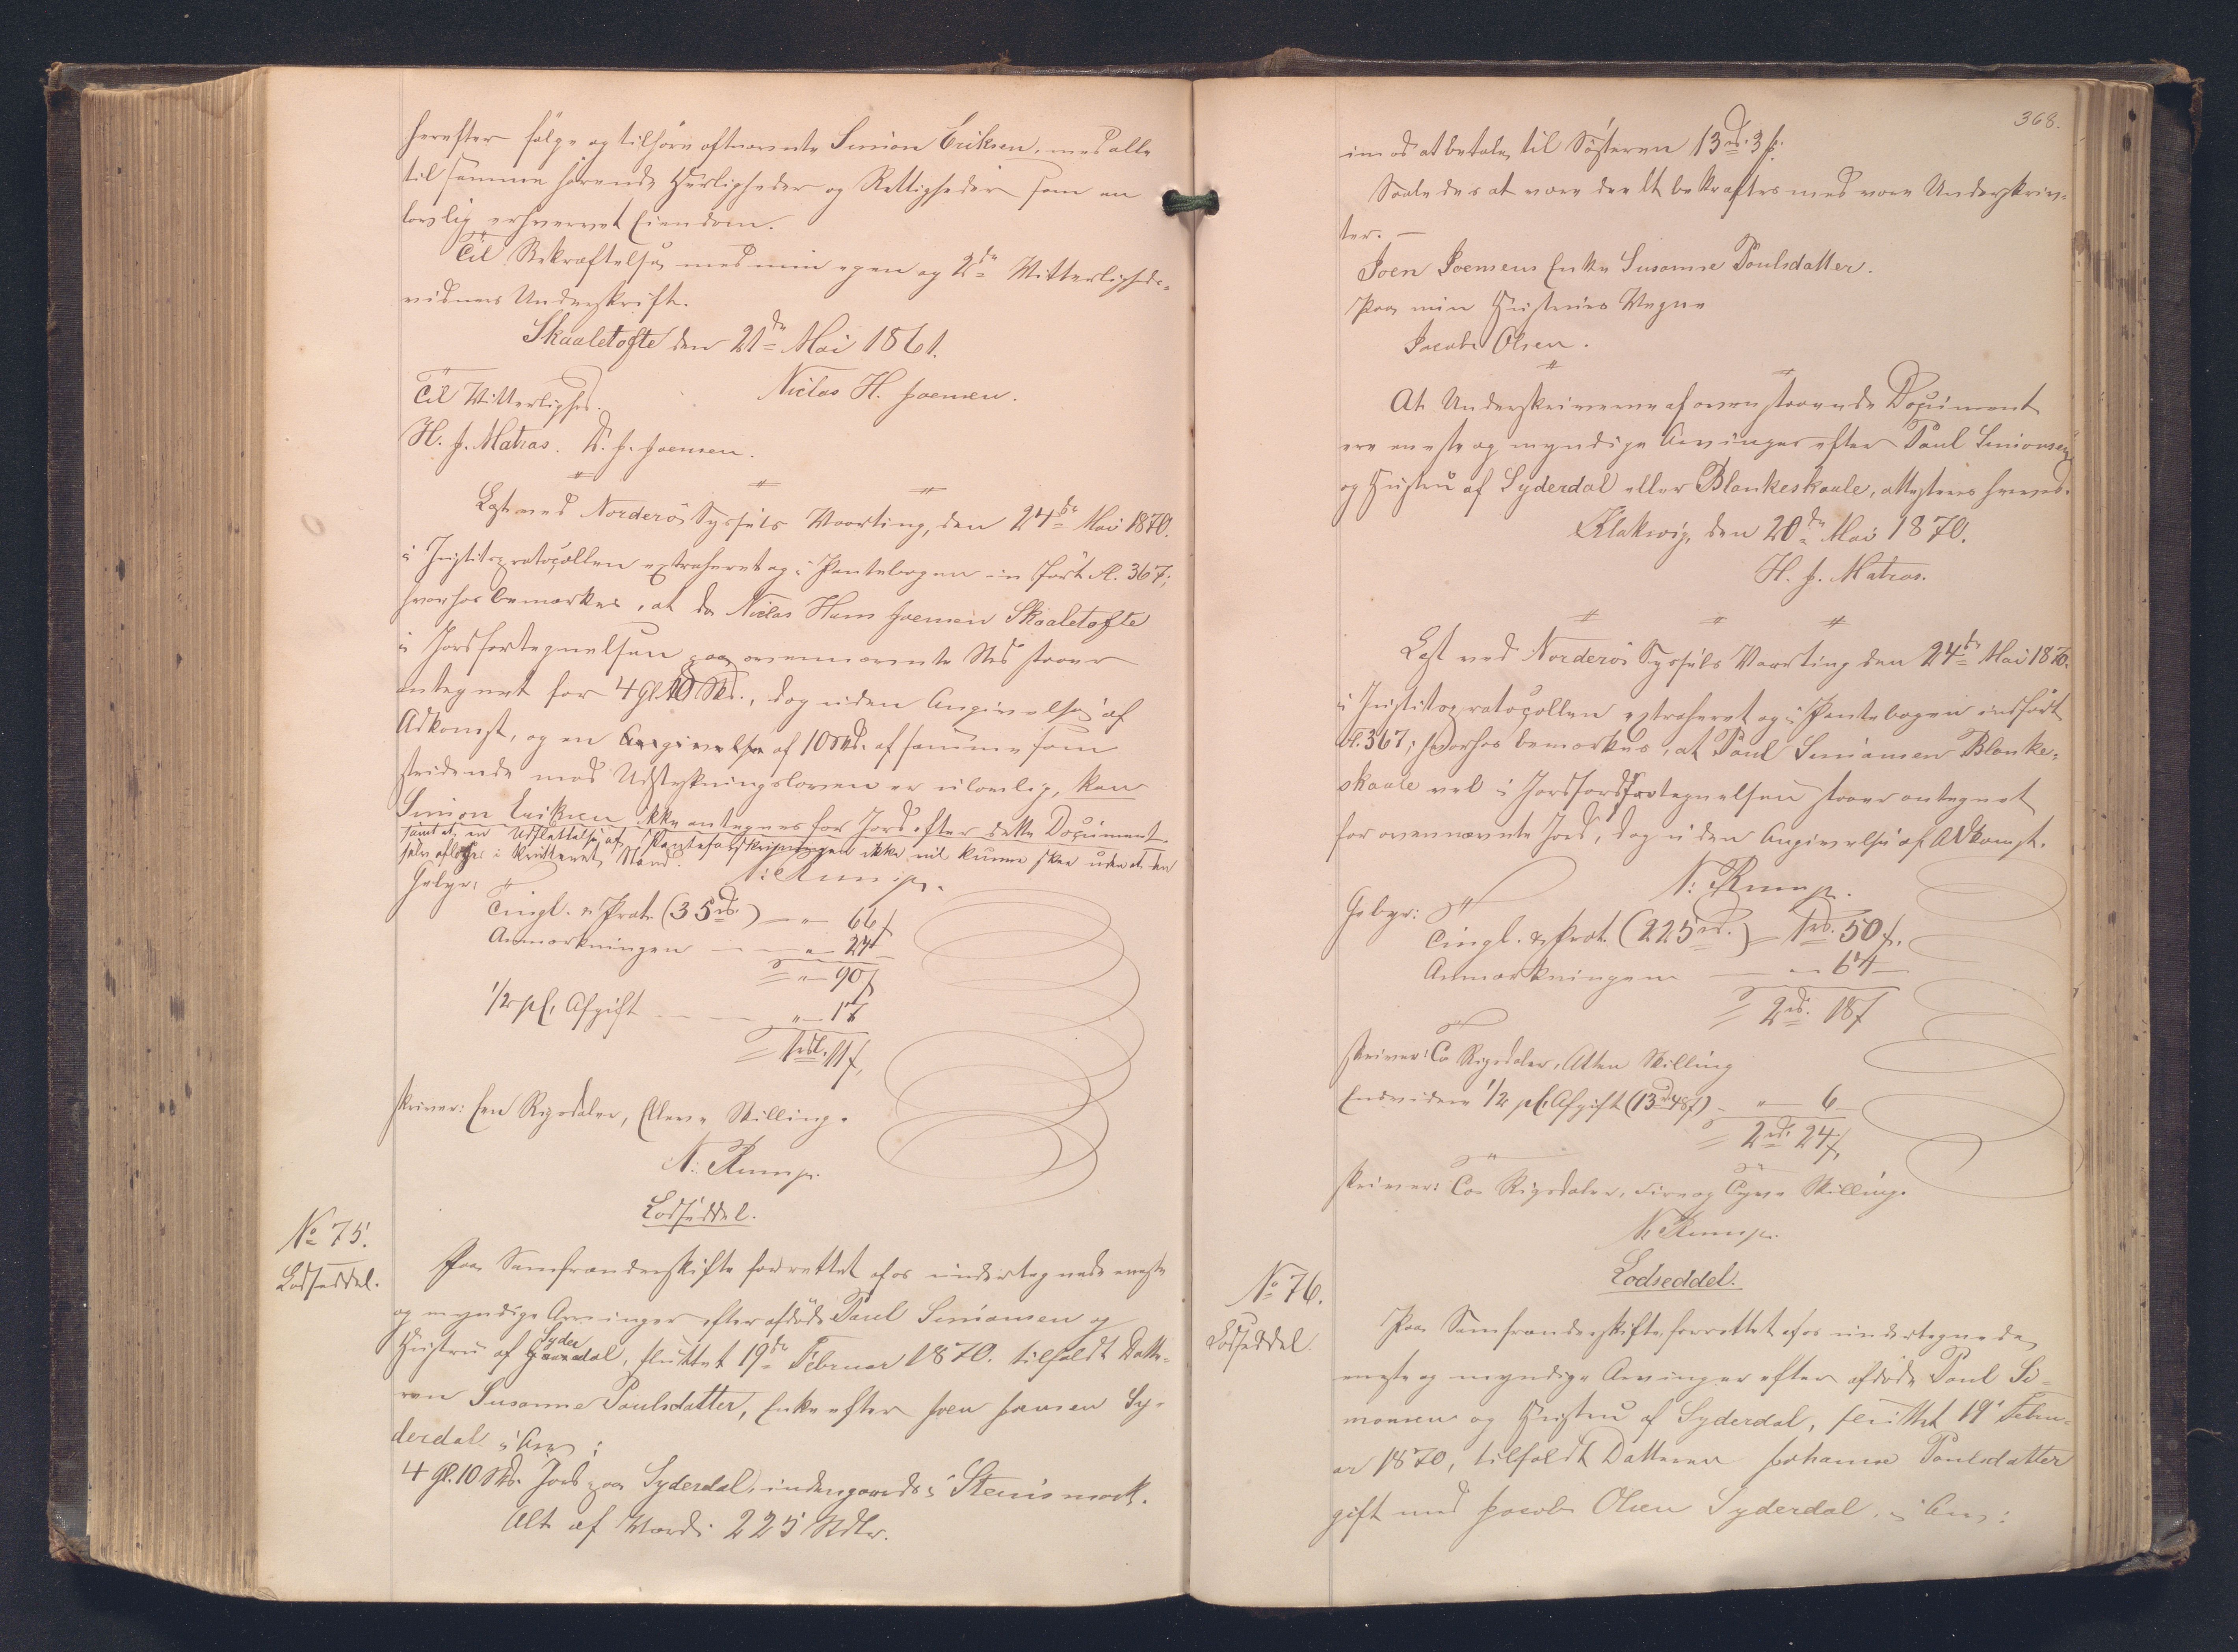 herefter følge og tilhøre oftnævnte Simon Eriksen, med alle
til samme hørende Herligheder og Rettigheder som en
lovlig erhvervet Eiendom.
Til Bekræftelse med min egen og 2de Vitterligheds-
vidners Underskrift.
Skaaletofte den 21de Mai 1861.
Niclas H. Joensen.
Til Vitterlighed.
H. J. Matras. D. J. Joensen.
Læst ved Norderø Syssels Vaarting, den 24de Mai 1870.
i Justitsprotocollen extraheret og i Pantebogen indført Fl. 367;
hvorhos bemærkes, at da Niclas Hans Joensen Skaaletofte
i Jordfortegnelsen paa ovennævnte Sted staaer
antegnet for 4 Gl. 10 Skd., dog uden Angivelse af
Adkomst, og en Angivelse af 10 Skd. af samme som
stridende mod Udstykningsloven er ulovlig, kan
Simon Eriksen ikke antegnes for Jord efter dette Document
samt at en Udslettelse af Panteforskrivningen ikke vil kunne skee uden at den
selv aflæses i kvitteret Stand.
N: Rump.
Gebyr:
Tingl. & Prot. (35 rd.) — " — 66 ß
Anmærkningen — " — 24 —
= " — 90 ß
1/2 pCt. Afgift — — — " — 17
= 1 rdl. 11 ß,
skriver: Een Rigsdaler, Elleve Skilling.
N: Rump.
Lodseddel.
No 75.
Lodseddel.
Paa Samfrændeskifte forrettet af os undertegnede eneste
og myndige Arvinger efter afdøde Paul Simonsen og
Syder
Hustru af dal, sluttet 19de Februar 1870. tilfaldt Datte-
ren Susanne Paulsdatter, Enke efter Joen Joensen Sy-
derdal i Arv:
4 Gl. 10 Skd. Jord paa Syderdal, indengaards i Stenismork.
Alt af Værdi 225 Rdlr.
368.
imod at betale til Søsteren 13 rd. 3 ß.
Saaledes at være deelt bekræftes med vore Underskriv-
ter. —
Joen Joensens Enke Susanne Poulsdatter.
Paa min Hustrues Vegne
Jacob Olsen.
At Underskriverne af ovenstaaende Document
ere eneste og myndige Arvinger efter Paul Simonsen
og Hustru af Syderdal eller Blankeskaale, attesteres herved.
Klaksvig, den 20de Mai 1870.
H. J. Matras.
Læst ved Norderø Syssels Vaarting den 24de Mai 1870.
i Justitsprotocollen extraheret og i Pantebogen indført
Fl. 367; hvorhos bemærkes, at Paul Simonsen Blanke-
skaale vel i Jordfortegnelsen staaer antegnet
for ovennævnte Jord, dog uden Angivelse af Adkomst.
N: Rump.
Gebyr:
Tingl. & Prot. (225 rd.) — 1 rd. 50 ß.
Anmærkningen — " — 64 —
= 2 rd. 18 ß
skriver: To Rigsdaler, Atten Skilling
Endvidere 1/2 pCt. Afgift (13 rd. 48 ß) — " — 6
= 2 rd. 24 ß,
skriver: To Rigsdaler, Fire og Tyve Skilling.
N. Rump.
Lodseddel.
No 76.
Lodseddel.
Paa Samfrændeskifte, forrettet af os undertegnede
eneste og myndige Arvinger efter afdøde Paul Si-
monsen og Hustru af Syderdal, sluttet 19' Febru-
ar 1870, tilfaldt Datteren Johanne Paulsdatter
gift med Jacob Olsen Syderdal, i Arv: